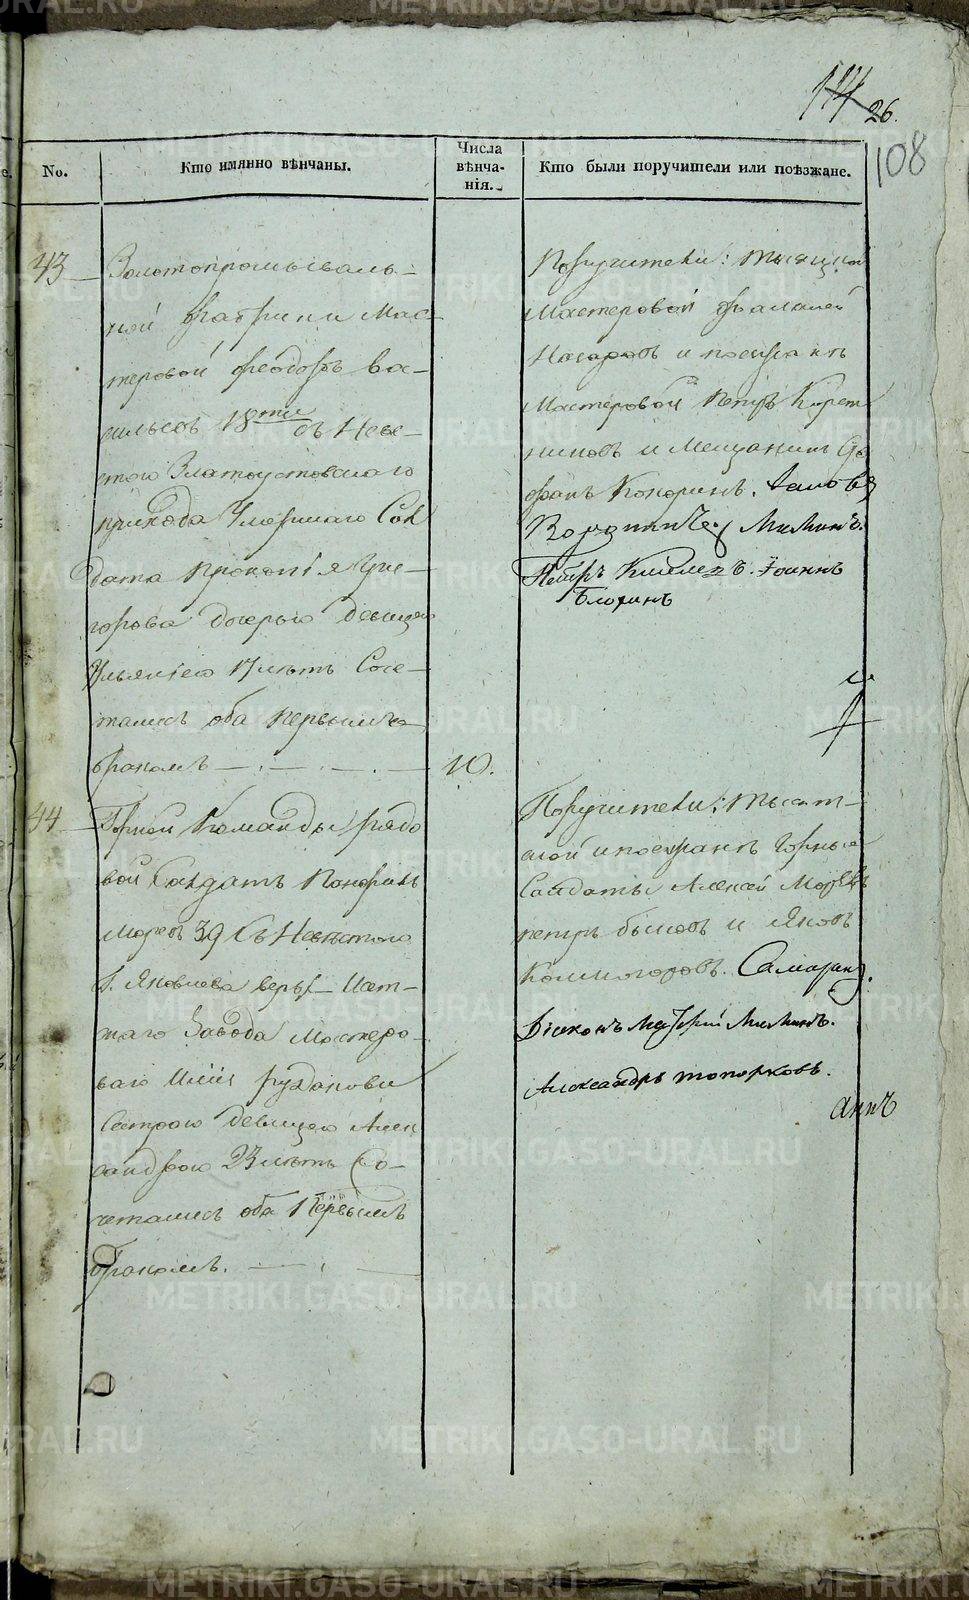 114 26.
108
No.
Кто имянно вѣнчаны.
Числа вѣнча-нія.
Кто были поручители или поѣзжане.
43
Золотопромываль-
ной фабрики Мас-
теровой Феодоръ Ва-
сильевъ 18ти съ Неве-
стою Златоустовскаго
прихода Умершаго Сол
дата Прокопія Гри-
горьева дочерью девицею
Ульяніею 17 летъ Соче-
тались оба первымъ
бракомъ
10.
Поручители: тысяцкой
Мастеровой
и поезжанъ
Мастеровой Петръ
и Мещанинъ
Кокоринъ. Іаковъ
Милинъ.
Петръ Киселевъ. Іоаннъ
44
Горной Команды рядо
вой Солдатъ
39 Съ Невестою
Г. Яковлева Верх- Исет-
скаго Завода Мастеро-
ваго
Сестрою девицею Алек
сандрою 23 летъ Со-
четались оба Первымъ
бракомъ.
Поручители: тысят-
ской и поезжанъ Горные
Солдаты Алексей
петръ Быковъ и Яковъ
Колмогоровъ.
Діаконъ Милинъ.
Александръ топорковъ.
METRIKI.GASO-URAL.RU